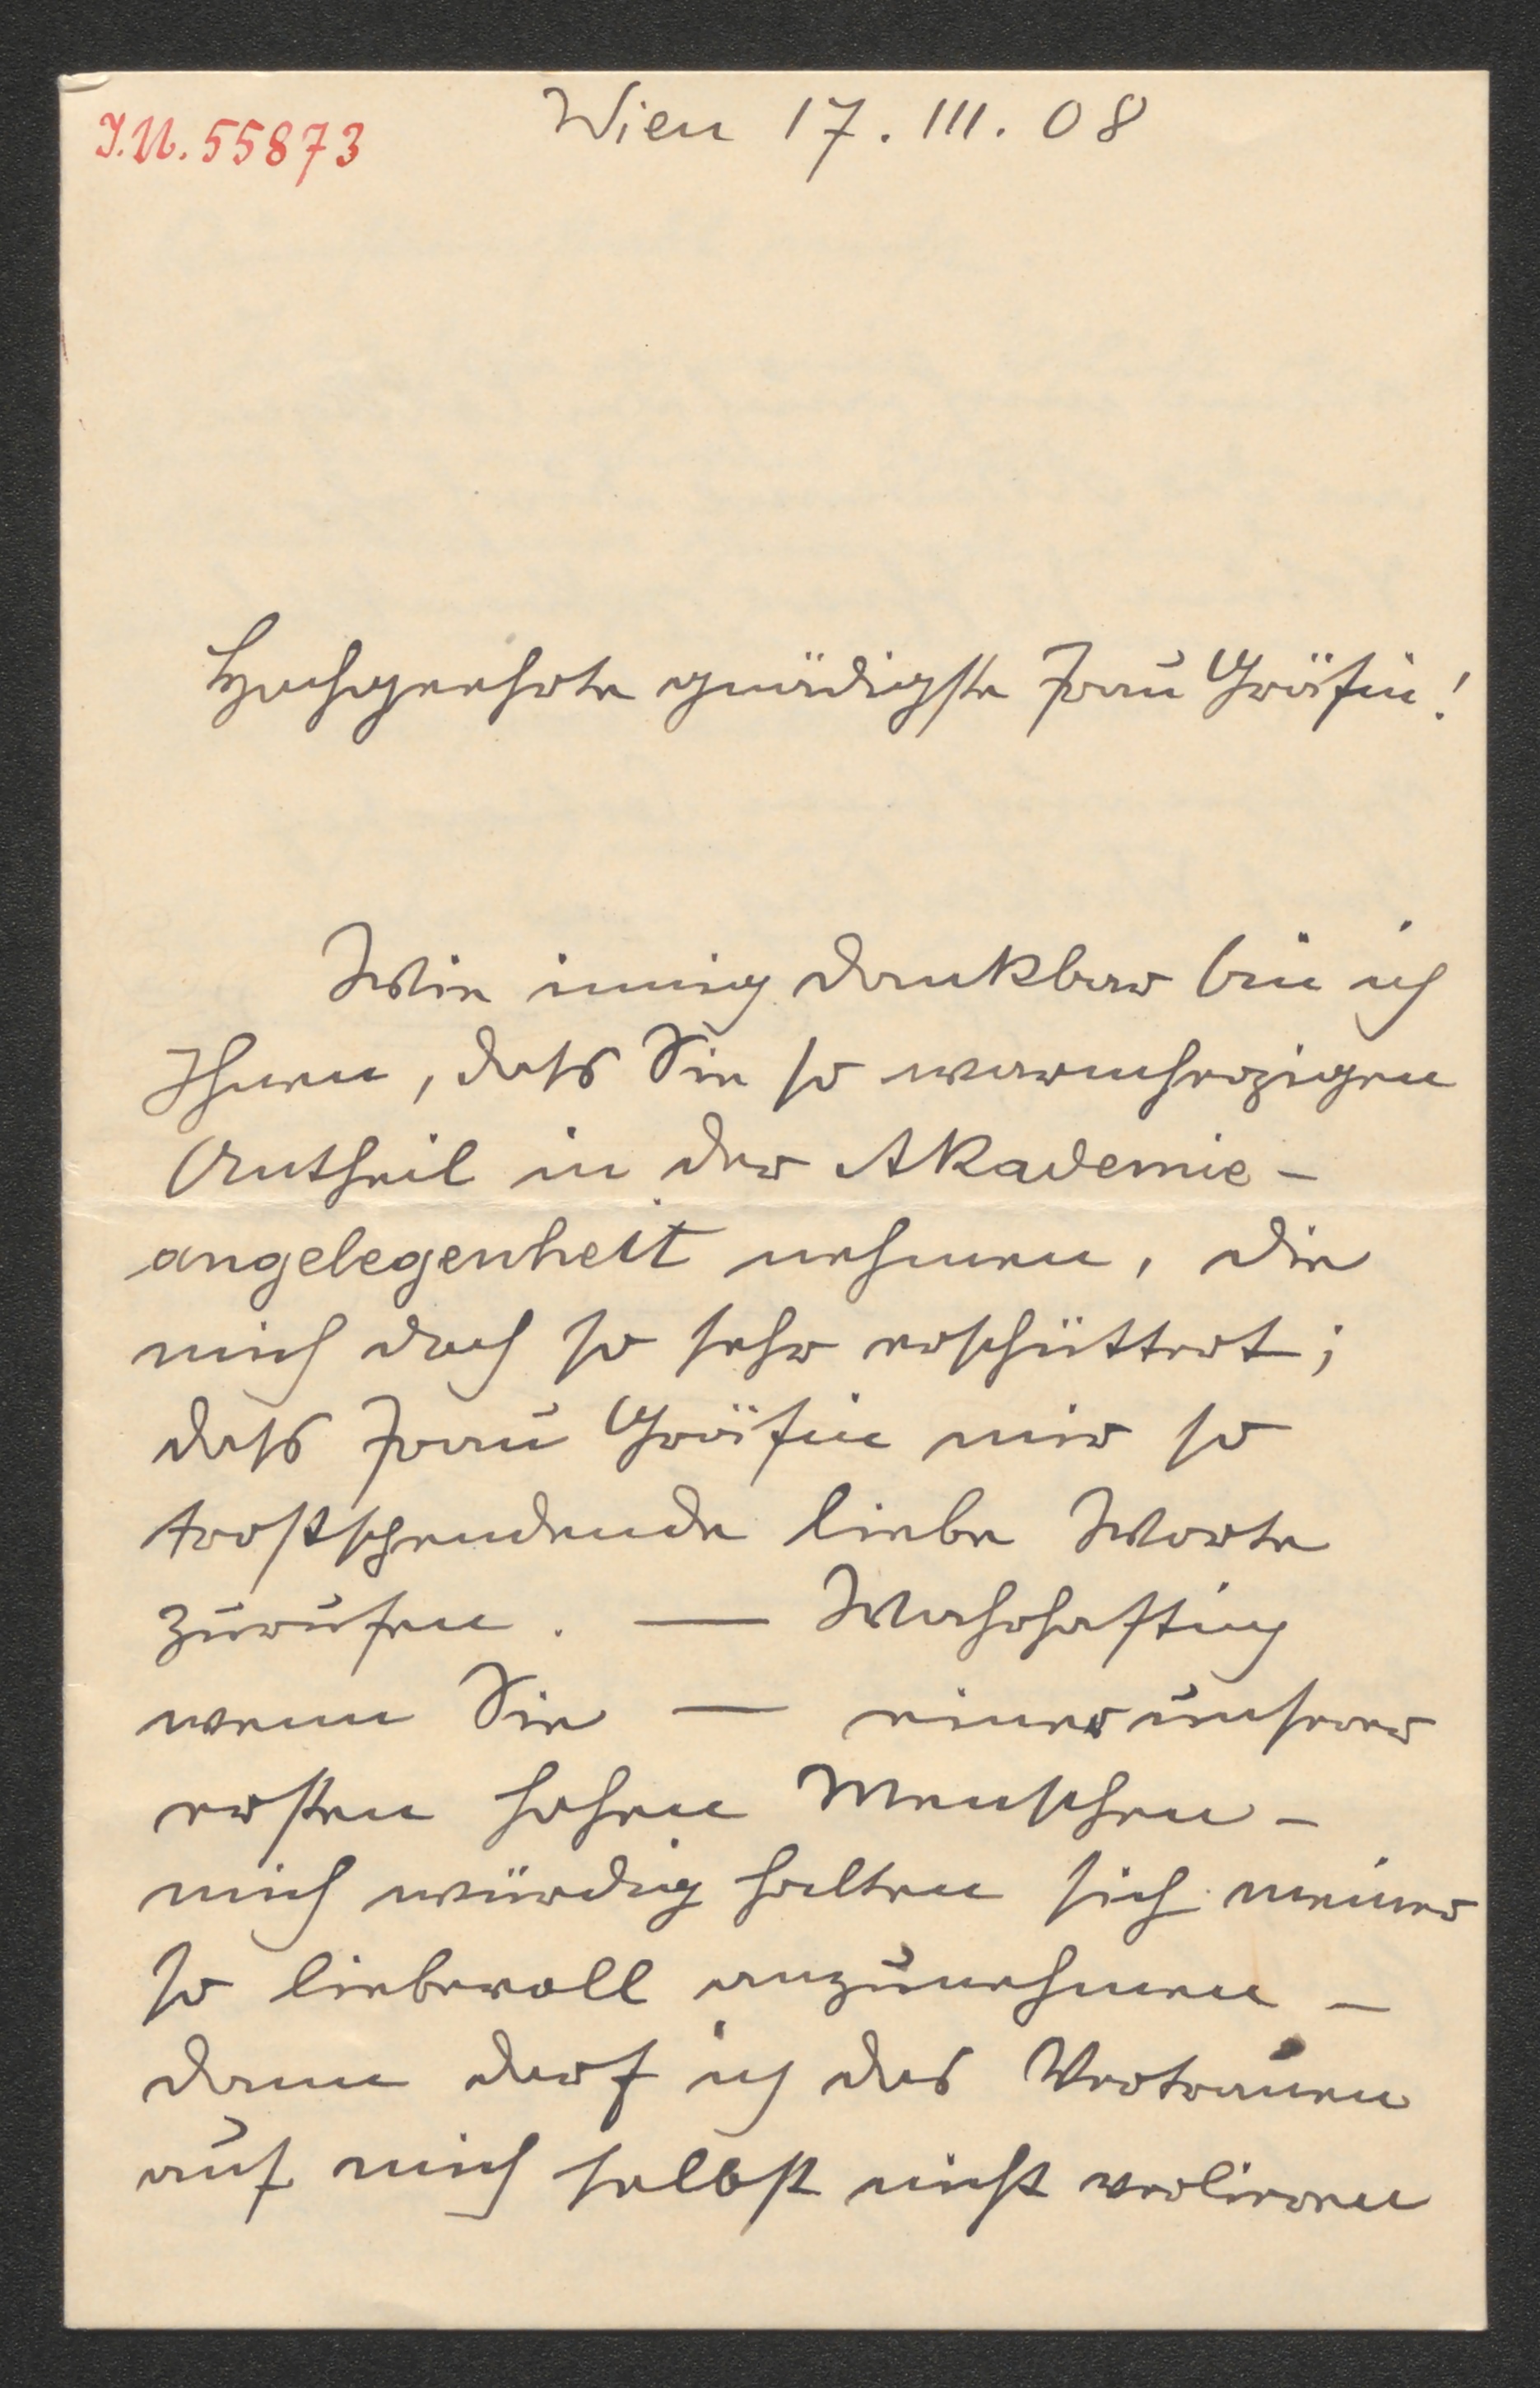 I.N. 55873
Wien 17. III. 08
Hochgeehrte gnädigste Frau Gräfin!
Wie innig dankbar bin ich
Ihnen, dass Sie so warmherzigen
Antheil in der Akademie-
angelegenheit nehmen, die
mich doch so sehr erschüttert;
dass Frau Gräfin mir so
trostspendende liebe Worte
zurufen. — Wahrhaftig
wenn Sie — einer unserer
ersten hohen Menschen -
mich würdig halten sich meiner
so liebevoll anzunehmen —
dann darf ich das Vertrauen
auf mich selbst nicht verlieren